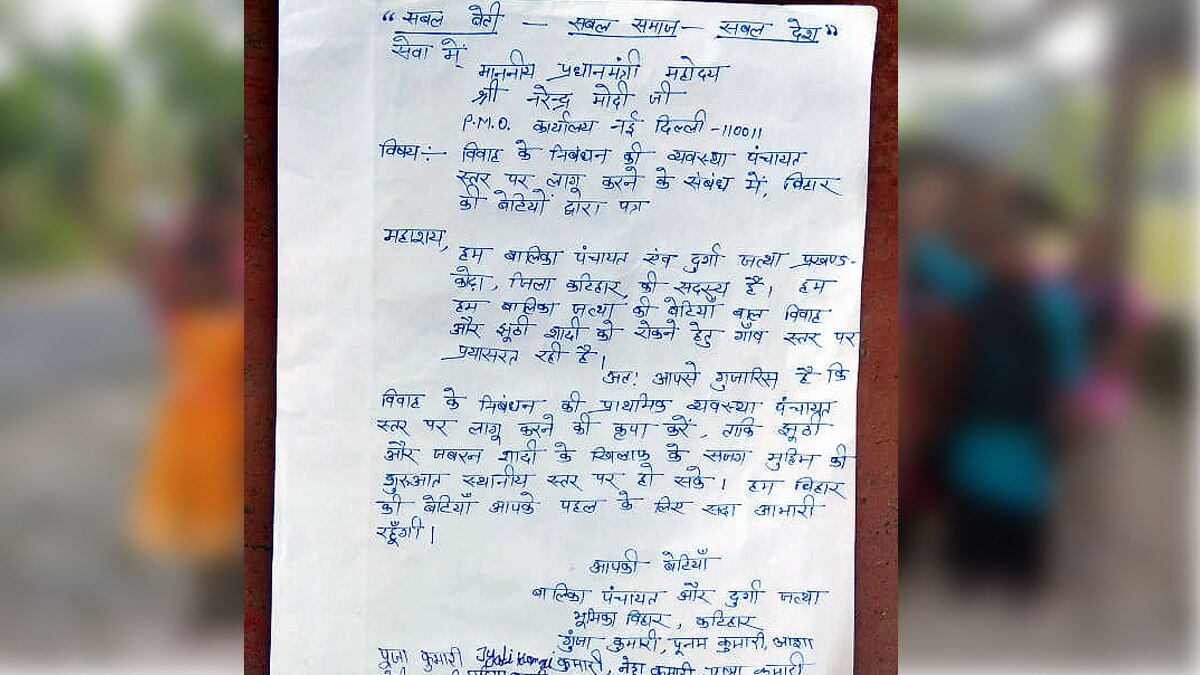 “सबल बेटी – सबल समाज – सबल देश”
सेवा में
माननीय प्रधानमंत्री महोदय
श्री नरेन्द्र मोदी जी
P.M.O. कार्यालय नई दिल्ली -110011
विषय:- विवाह के निबंधन की व्यवस्था पंचायत
स्तर पर लागू करने के संबंध में, बिहार
की बेटियों द्वारा पत्र
महाशय,
हम बालिका पंचायत एंव दुर्गा जत्था प्रखण्ड-
कोढ़ा, जिला कटिहार, की सदस्य हैं। हम
हम बालिका जत्था की बेटियाँ बाल विवाह
और झूठी शादी को रोकने हेतु गाँव स्तर पर
प्रयासरत रही है।
अतः आपसे गुजारिस है कि
विवाह के निबंधन की प्राथमिक व्यवस्था पंचायत
स्तर पर लागू करने की कृपा करें, ताकि झूठी
और जबरन शादी के खिलाफ के सजग मुहिम की
शुरुआत स्थानीय स्तर पर हो सके। हम बिहार
की बेटियाँ आपके पहल के लिए सदा आभारी
रहूँगी।
आपकी बेटियाँ
बालिका पंचायत और दुर्गा जत्था
भूमिका विहार, कटिहार
गुंजा कुमारी, पूनम कुमारी, आशा
पूजा कुमारी Jyoti kumari कुमारी, नेहा कुमारी